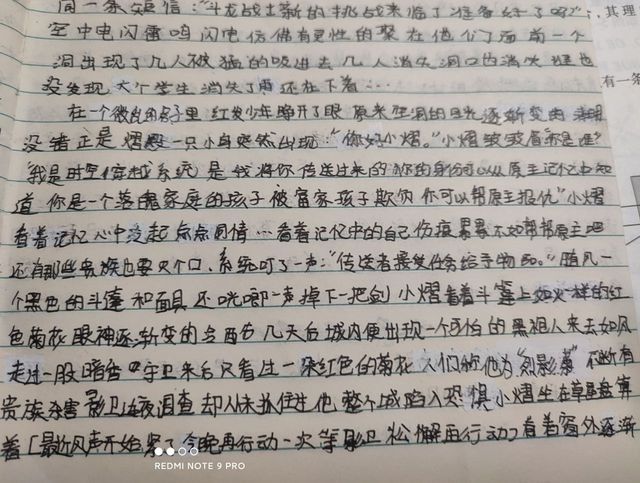 同一条短信："斗龙战士新的挑战来临了准备好了吗?"
空中电闪雷鸣闪电仿佛有灵性的聚在他们面前一个
洞出现了几人被猛的吸进去几人消失洞口也消失班也
没发现大个学生消失了雨还在下着…
在一个微白的房子里红发少年睁开了眼原来空洞的目光逐渐变的清明
没错正是熠熠一只小身突然出现："你好小熠。"小熠皱皱眉你是谁?
"我是时空传越系统是我将你传送过来的你的身份可以从原主记忆中知
道你是一个落魄家庭的孩子被富家孩子欺负你可以帮原主报仇"小熠
看着记忆心中泛起点点同情…看着记忆中的自己伤痕累累不如帮帮原主吧
还有那些贵族也要灭个口、系统叮了一声："传送者接受任务给予物品。"随风一
个黑色的斗篷和面具还咣啷一声掉下一把剑小熠看着斗篷上如火一样的红
色菊花眼神逐渐变的几天后城内便出现一个可怕的黑袍人来去如风
走过一股暗香守卫来后只看过一朵红色的菊花人们称他为"幻影" 不断有
贵族杀害影卫连夜调查却从未抓住他整个城陷入恐惧小熠坐在草屋盘算
着[最近风声开始紧了今晚再行动一次等影卫松懈再行动]看着窗外逐渐
其理
有一条
REDMI NOTE 9 PRO